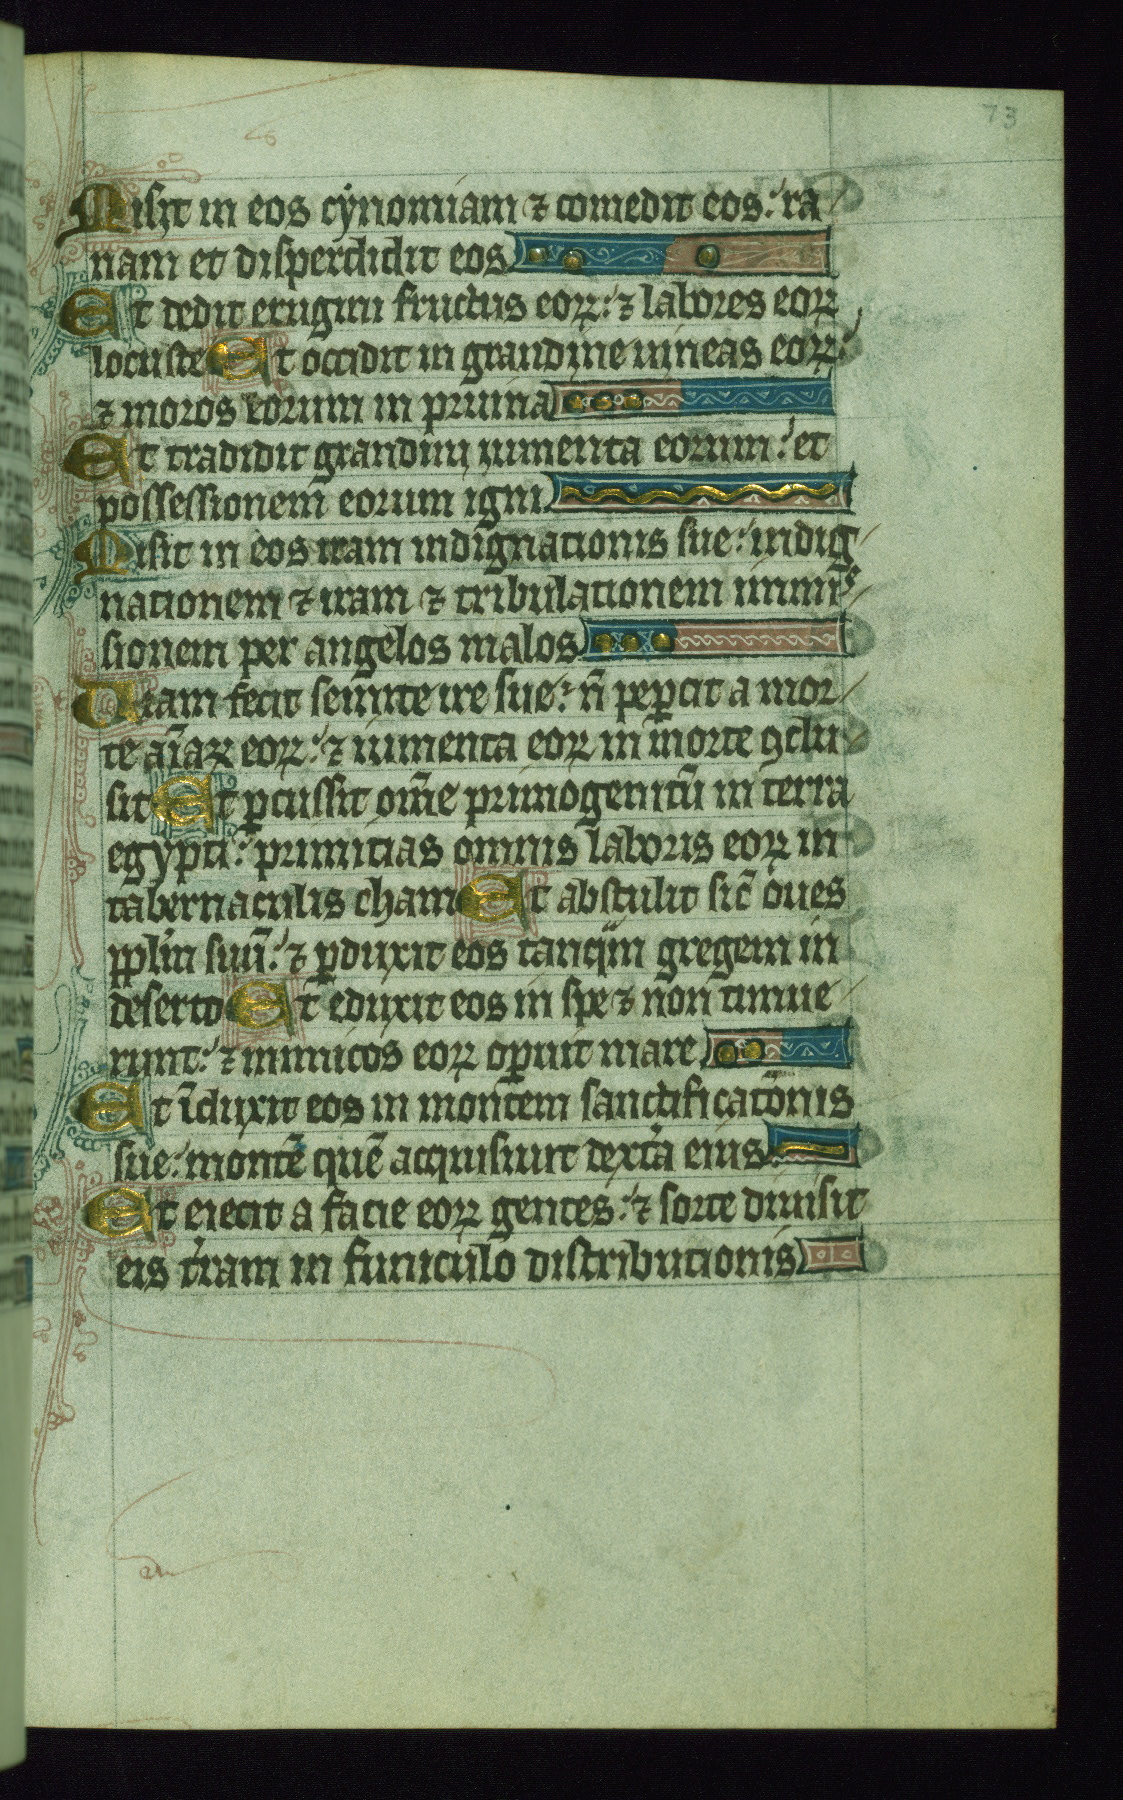 73
Misit in eos cynomiam ⁊ comedit eos: ra
nam et disperdidit eos
Et dedit erugini fructus eoꝝ: ⁊ labores eoꝝ
locuste Et occidit in grandine uineas eoꝝ:
⁊ moros eorum in pruina
Et tradidit grandini iumenta eorum: et
possessionem eorum igni
Misit in eos iram indignationis sue: indig
nationem ⁊ iram ⁊ tribulationem inmis
sionem per angelos malos
Uiam fecit semite ire sue: nō peꝑcit a mor
te aīaꝝ eoꝝ: ⁊ iumenta eoꝝ in morte ꝯclu
sit Et ꝑcussit om̄e primogenitū in terra
egypti: primitias omnis laboris eoꝝ in
tabernaculis cham Et abstulit sic̄ oues
pplm̄ suū: ⁊ ꝑduxit eos tanqͣm gregem in
deserto Et eduxit eos in spe ⁊ non timue
runt: ⁊ inimicos eoꝝ oꝑuit mare
Et īduxit eos in montem sanctificatōnis
sue: montē quē acquisiuit dext̓a eius
Et eiecit a facie eoꝝ gentes: ⁊ sorte diuisit
eis t̓ram in funiculo distributionis